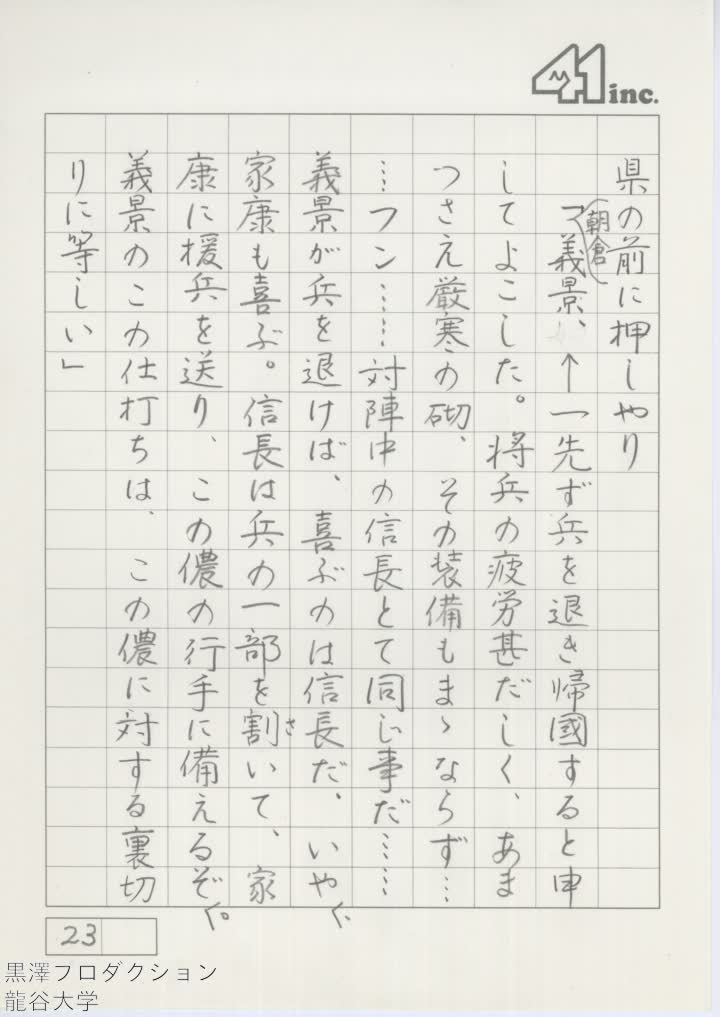 41 inc.
県の前に押しやり
「朝倉義景、↑一先ず兵を退き帰國すると申
してよこした。将兵の疲労甚だしく、あま
つさえ厳寒の砌、その装備もまゝならず…
…フン……対陣中の信長とて同じ事だ……
義景が兵を退けば、喜ぶのは信長だ、いや、
家康も喜ぶ。信長は兵の一部を割いて、家
さ
康に援兵を送り、この儂の行手に備えるぞ。
義景のこの仕打ちは、この儂に対する裏切
りに等しい」
23
黒澤プロダクション
龍谷大学